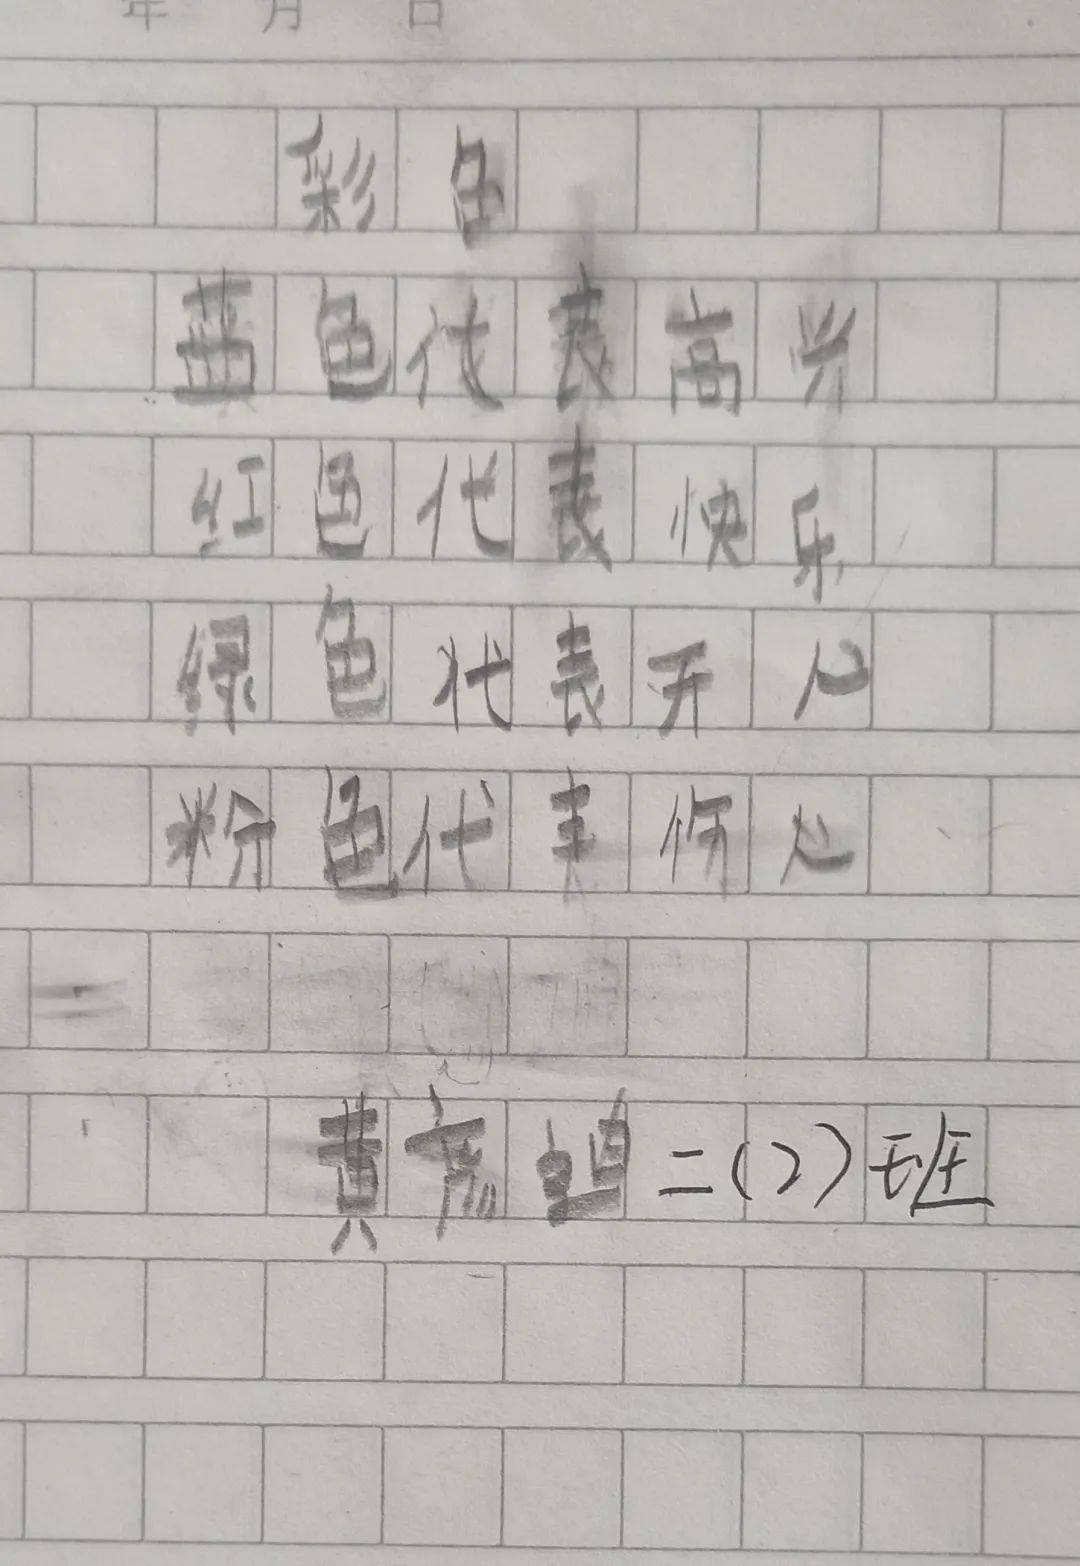 年 月 日
彩色
蓝色代表高兴
红色代表快乐
绿色代表开心
粉色代表伤心
黄彦 二(2)班